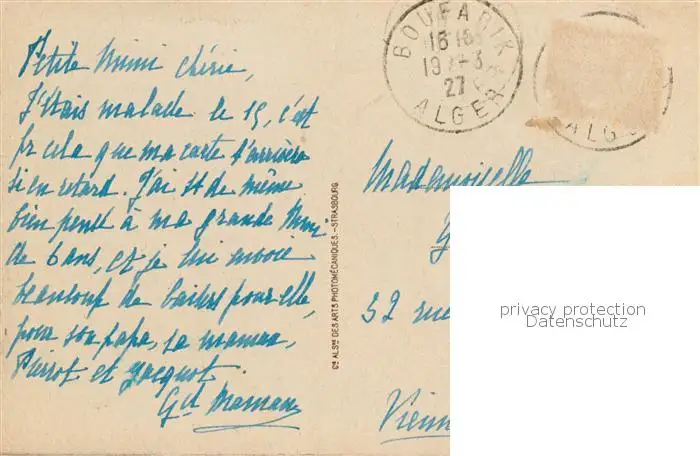 Petite Mimi chérie,
J'étais malade le 15, c'est
pr cela que ma carte t'arrivera
si en retard. J'ai tt de même
bien pensé à ma grande Mimi
de 6 ans, et je lui envoie
beaucoup de baisers pour elle,
pour son papa, sa maman,
Pierrot et Jacquot.
Gd Maman
Cie ALSne DES ARTS PHOTOMÉCANIQUES.-STRASBOURG
BOUFARIK
1618
19-3
27
ALGER
ALG
Mademoiselle
52 rue
Vienn
privacy protection
Datenschutz